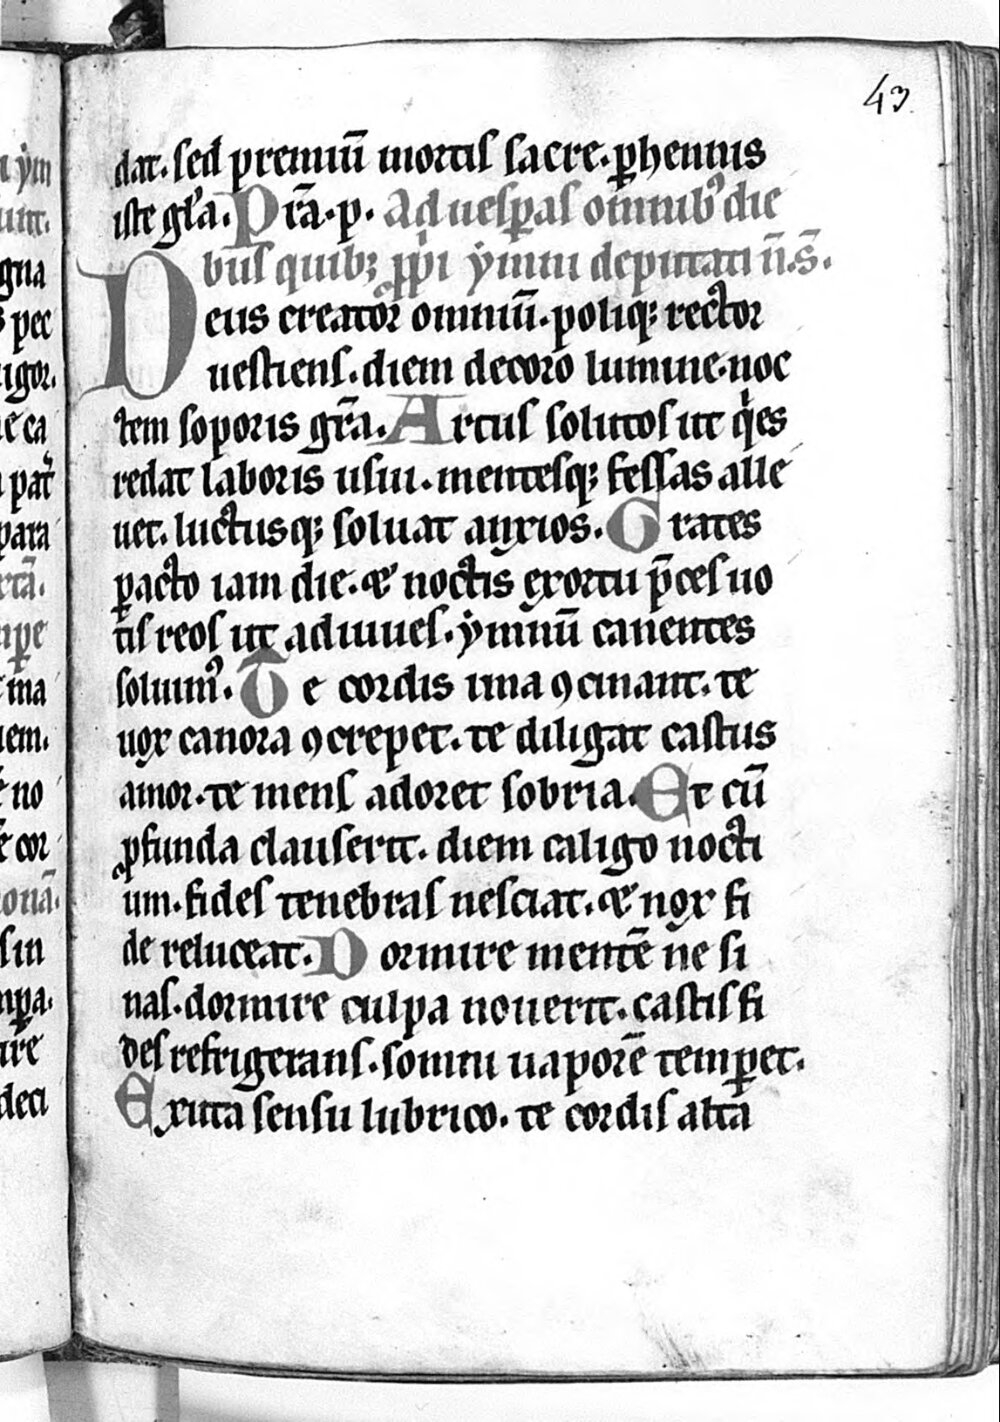 43
dat. sed premiū mortis sacre. ꝑhennis
iste gl̄a. Pr̄a. p. Ad uesꝑas omnibꝰ die
bus quibꝫ ꝓpri ẏmni deputati n̄. s̄.
Deus creator omniū. poliqꝫ rector
uestiens. diem decoro lumine. noc
tem soporis gr̄a. Artus solutos ut qͥes
redat laboris usui. mentesqꝫ fessas alle
uet. luctusqꝫ soluat anxios. Grates
ꝑacto iam die. & noctis exortu p̄ces uo
tis reos ut adiuues. ẏmnū canentes
soluimꝰ. Te cordis ima ꝯcinant. te
uox canora ꝯcrepet. te diligat castus
amor. te mens adoret sobria. Et cū
ꝓfunda clauserit. diem caligo nocti
um. fides tenebras nesciat. & nox fi
de reluceat. Dormire mentē ne si
nas. dormire culpa nouerit. castis fi
des refrigerans. somni uaporē temꝑet.
Exuta sensu lubrico. te cordis alta